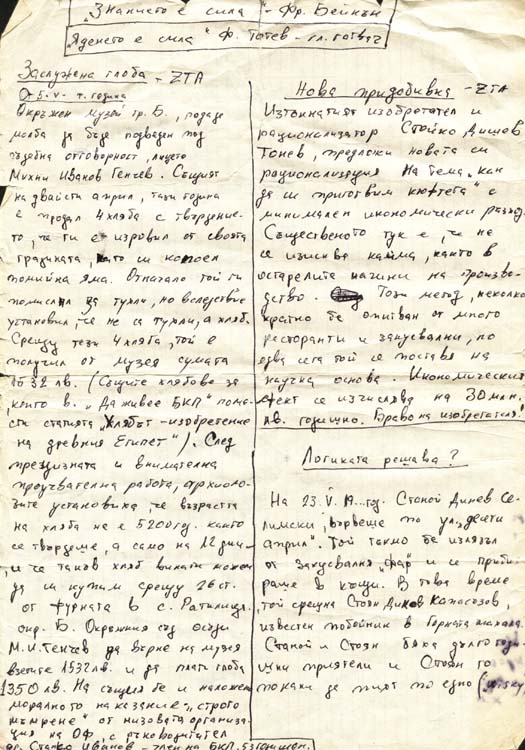 „Знанието е сила" - Фр. Бейкън
„Яденето е сила" Ф. Тотев - гл. готвач
Заслужена глоба - ZTA
От 5. V - т. година
Окръжен музей гр. Б., подаде
молба да бъде подведен под
съдебна отговорност, лицето
Михни Иванов Генчев. Същият
на двайсти април, тази година
е продал 4 хляба с твърдение-
то, че ги е изровил от своята
градината, като си копаел
помийна яма. Отначало той ги
помислил за тухли, но вследствие
установил, че не са тухли, а хляб.
Срещу тези 4 хляба, той е
получил от музея сумата
1532 лв. (Същите хлябове за
които в. „Да живее БКП" поме-
сти статията „Хлябът - изобретение
на древния Египет"). След
прецизната и внимателна
проучвателна работа, археоло-
зите установиха, че възрастта
на хляба не е 5200 год. както
се твърдеше, а само на 12 дни-
и че такъв хляб винаги можем
да си купим срещу 26 ст.
от фурната в с. Ратилица,
окр. Б. Окръжния съд осъди
М. И. Генчев да върне на музея
взетите 1532 лв. и да плати глоба
1350 лв. На същия бе и наложено
моралното наказание „строго
мъмрене" от низовата организа-
ция на ОФ, с ръководител
др. Станко Иванов - член на БКП.
Нова придобивка - ZTA
Изтъкнатият изобретател и
рационализатор Стойко Дишов
Тонев, предложи новата си
рационализация на тема „как
да си приготвим кюфтета" с
минимален икономически разход.
Същественото тук е, че не
се изисква кайма, както в
остарелите начини на произво-
дство. Този метод, неколко
кратно бе опитван от много
ресторанти и закусвални, но
едва сега той се поставя на
научна основа. Икономическият
ефект се изчислява на 30 млн.
лв. годишно. Браво на изобретателя!
Логиката решава?
На 23. V. 19... год. Станой Динев Се-
лимски, вървеше по ул. „десети
април". Той токмо бе излязъл
от закусвалня „Фар" и се приби-
раше в къщи. В това време
той срещна Стоян Диков Капасъзов,
известен побойник в Горната махала.
Станой и Стоян бяха дълго годи-
шни приятели и Стоян го
покани да пият по едно